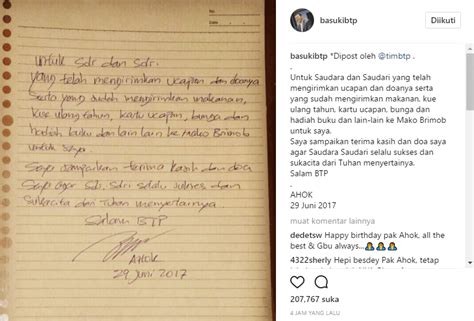 No.
Date
untuk Sdr dan Sdri.
yang telah mengirimkan ucapan dan doanya
Serta yang sudah mengirimkan makanan,
kue ulang tahun, kartu ucapan, bunga dan
hadiah buku dan lain-lain ke Mako Brimob
untuk saya.
Saya sampaikan terima kasih dan doa
saya agar Sdr, Sdri selalu sukses dan
Sukacita dari Tuhan menyertainya
Salam BTP
AHOK
29 Juni 2017
basukibtp
Diikuti
basukibtp *Dipost oleh @timbtp .
.
Untuk Saudara dan Saudari yang telah
mengirimkan ucapan dan doanya serta
yang sudah mengirimkan makanan, kue
ulang tahun, kartu ucapan, bunga dan
hadiah buku dan lain-lain ke Mako Brimob
untuk saya.
Saya sampaikan terima kasih dan doa saya
agar Saudara Saudari selalu sukses dan
sukacita dari Tuhan menyertainya.
Salam BTP
.
AHOK
29 Juni 2017
muat komentar lainnya
dedetsw Happy birthday pak Ahok, all the
best & Gbu always...🙇🙇🙇
4322sherly Hepi besdey Pak Ahok, tetap
207,767 suka
4 JAM YANG LALU